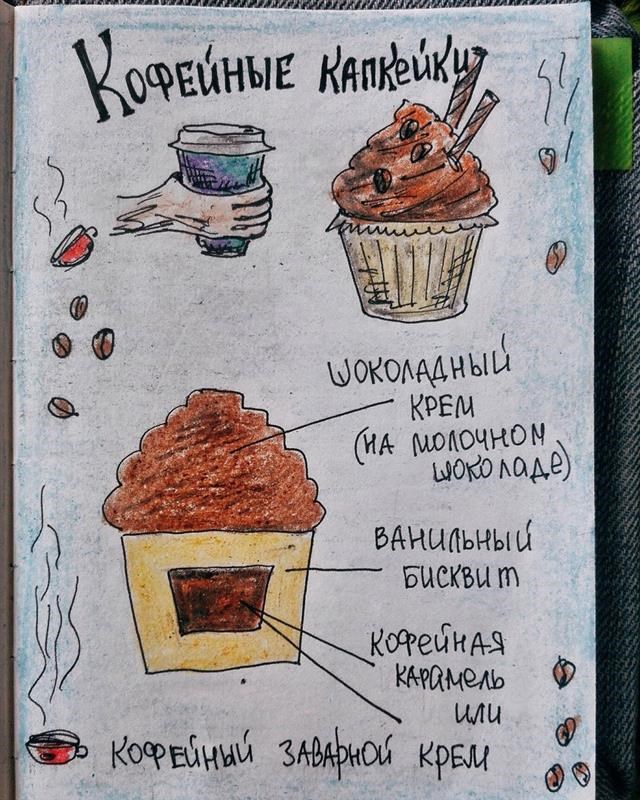 Кофейные капкейки
шоколадный
крем
(на молочном
шоколаде)
ванильный
бисквит
кофейная
карамель
или
кофейный заварной крем